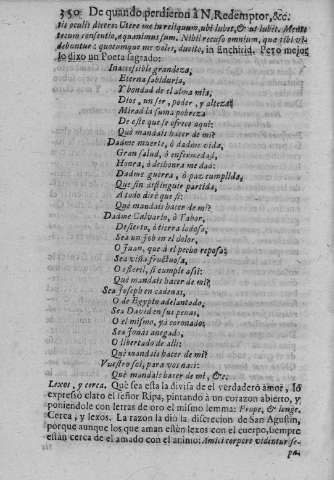 350. De quando perdieron à N. Redemptor, &c.
tis oculis dicere: Utere me in reliquum, ubi lubet, & ut lubit. Mente
tecum consentio, æquanimus sum. Nihil recuso omnium, quæ tibi vi-
debuntur: quocumque me voles, ducito, in Enchirid. Pero mejor
lo dixo un Poeta sagrado:
Inaccesible grandeza,
Eterna sabiduria,
Y bondad de el alma mia,
Dios, un ser, poder, y alteza,
Mirad la suma pobreza
De este que se ofrece aqui:
Què mandais hacer de mi?
Dadme muerte, ò dadme vida,
Gran salud, ò enfermedad,
Honra, ò deshonra me dad:
Dadme guerra, ò paz cumplida,
Que sin distinguir partida,
A todo dirè que si:
Què mandais hacer de mi?
Dadme Calvario, ò Tabor,
Desierto, ò tierra
Sea un Job en el dolor,
O Juan, que à el pecho reposa:
Sea viña fructuosa,
O esteril, si cumple asi:
Què mandais hacer de mi?
Sea Joseph en cadenas,
O de Egypto adelantado,
Sea David en sus penas,
O el mismo, yà coronado:
Sea Jonàs anegado,
O libertado de alli:
Què mandais hacer de mi?
Vuestro soi, para vos naci:
Què mandais hacer de mi, &c.
Lexos, y cerca. Què sea esta la divisa de el verdadero amor, lo
expresò claro el señor Ripa, pintando à un corazon abierto, y
poniendole con letras de oro el mismo lemma: Prope, & longe.
Cerca, y lexos. La razon la dio la discrecion de San Agustin,
porque aunque los que aman estèn lexos con el cuerpo, siempre
estàn cerca de el amado con el animo: Amici corpore videntur se-
pa-